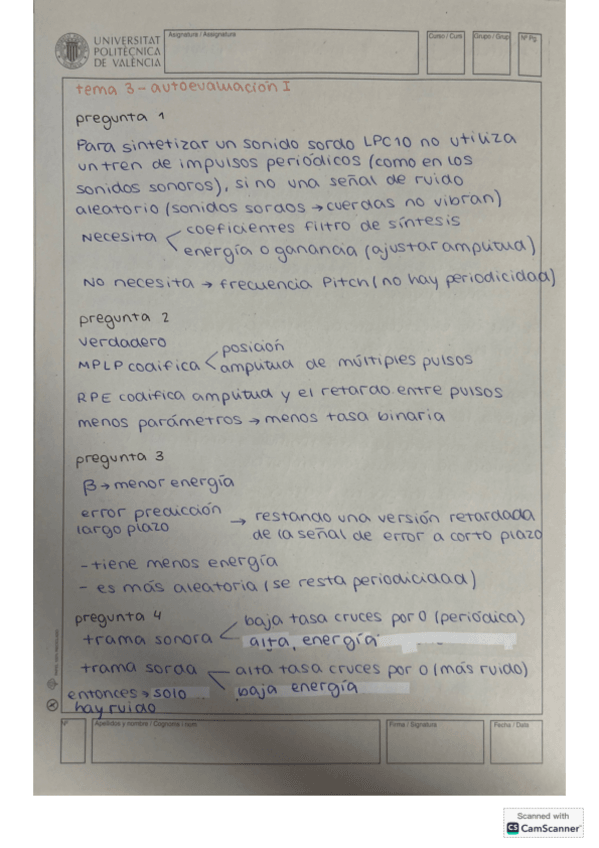 UNIVERSITAT
POLITÈCNICA
DE VALÈNCIA
Asignatura / Assignatura
Curso / Curs
Grupo / Grup
Nº Pg.
tema 3 - autoevaluación I
pregunta 1
Para sintetizar un sonido sordo LPC10 no utiliza
un tren de impulsos periódicos (como en los
sonidos sonoros), si no una señal de ruido
aleatorio (sonidos sordos → cuerdas no vibran)
Necesita < coeficientes filtro de síntesis
energía o ganancia (ajustar amplitud)
No necesita → frecuencia Pitch (no hay periodicidad)
pregunta 2
verdadero
MPLP codifica < posición
amplitud de múltiples pulsos
RPE codifica amplitud y el retardo entre pulsos
menos parámetros → menos tasa binaria
pregunta 3
β → menor energía
error predicción
largo plazo → restando una versión retardada
de la señal de error a corto plazo
- tiene menos energía
- es más aleatoria (se resta periodicidad)
pregunta 4
trama sonora < baja tasa cruces por 0 (periódica)
alta energía
trama sorda < alta tasa cruces por 0 (más ruido)
baja energía
entonces → solo
hay ruido
Nº
Apellidos y nombre / Cognoms i nom
Firma / Signatura
Fecha / Data
Scanned with
CS CamScanner